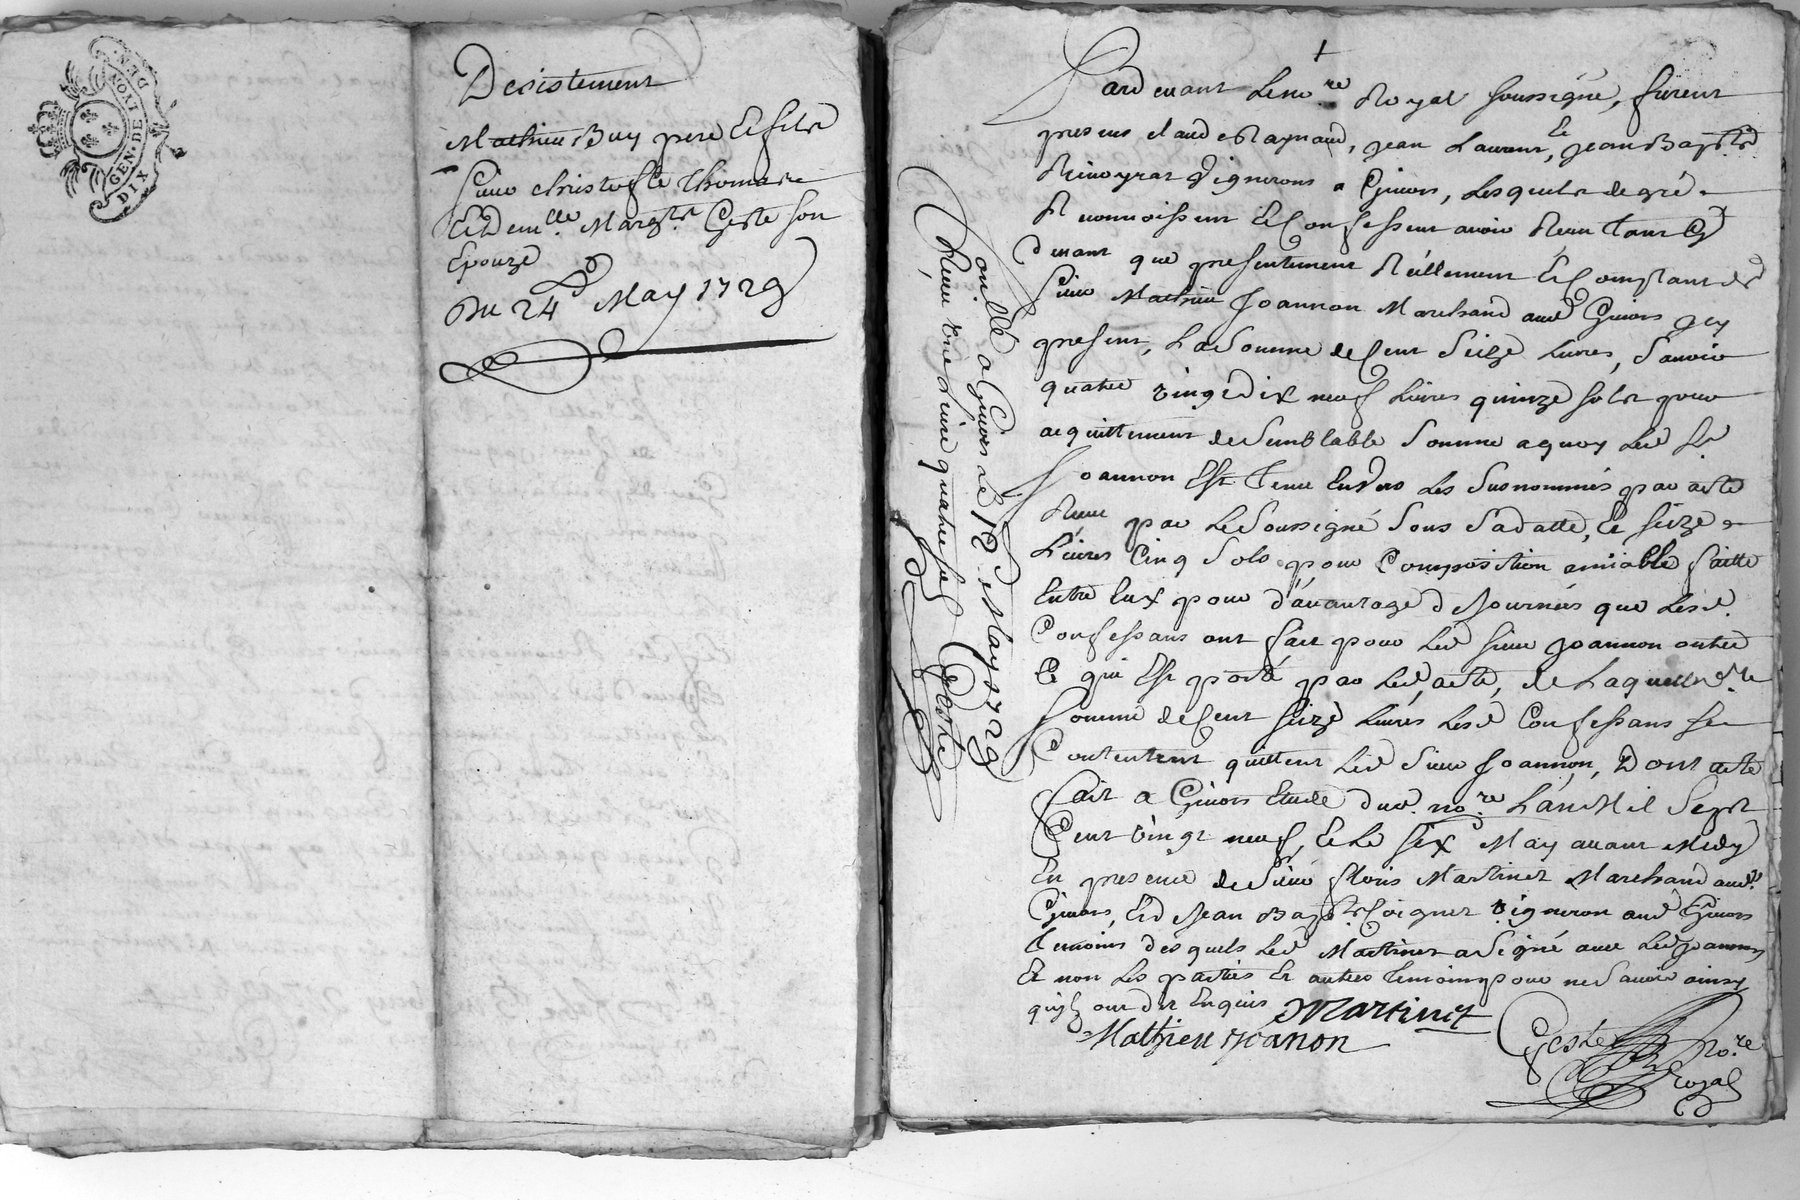 GEN. DE LYON
DIX DEN.
Desistement
Mathieu Buy pere et fils
Sieur christofle Thomas
Et Dem.lle Marg.te Geste son
Epouze
Du 24e May 1729
Pardevant Le no.re Royal soussigné, furent
presens claude Raynaud, jean Laurent, et jean Bapt.e
Rimoyrat vignerons a Givors, Lesquels de gré
Reconnoissent Et Confessent avoir Receu tant cy
devant que presentement Réellement Et Comptant du
sieur Mathieu Joannon Marchand aud Givors icy
present, La Somme de Cent Seize Livres, Sauoir
quatre vingt dix neuf Livres quinze sols pour
acquittement de Semblable Somme a quoy Led Sr
Joannon Est Tenu Envers Les Susnommés par acte
Receu par Le Soussigné Sous Sa datte, Et Seize
Livres Cinq Sols pour Composition amiable faitte
Entre Eux pour d'avantage de Journées que Lesd.
Confessans ont fait pour Led sieur Joannon outre
Ce qui Est porté par Led acte, de Laquelle
Somme de Cent Seize Livres Lesd Confessans se
Contentent quittent Led Sieur Joannon, Dont acte
fait a Givors Etude dud. no.re L'an Mil Sept
Cent vingt neuf, Et Le Six May auant Midy
En presence de Sieur floris Martinet Marchand aud.
Givors, Et de Jean Bapt.e Coignet vigneron aud Givors
temoins desquels Led Martinet a Signé avec Led Joannon
Et non Les parties Et autres temoins pour ne Sauoir ainsy
qu'ils ont dit Enquis
Martinet
Mathieu Joanon
Geste No.re
Royal
Controllé a Givors Le 12e May 1729
Receu une Livre quatre sols Geste